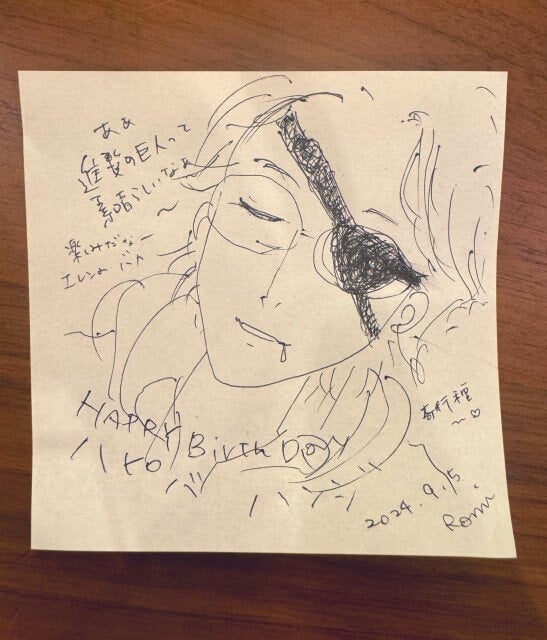 あぁ
進撃の巨人って
素晴らしいなぁ
〜
楽しみだなー
エレン
奇行種
〜♡
HAPPY Birth DAY
to ハンジ
2024.9.5
Romi